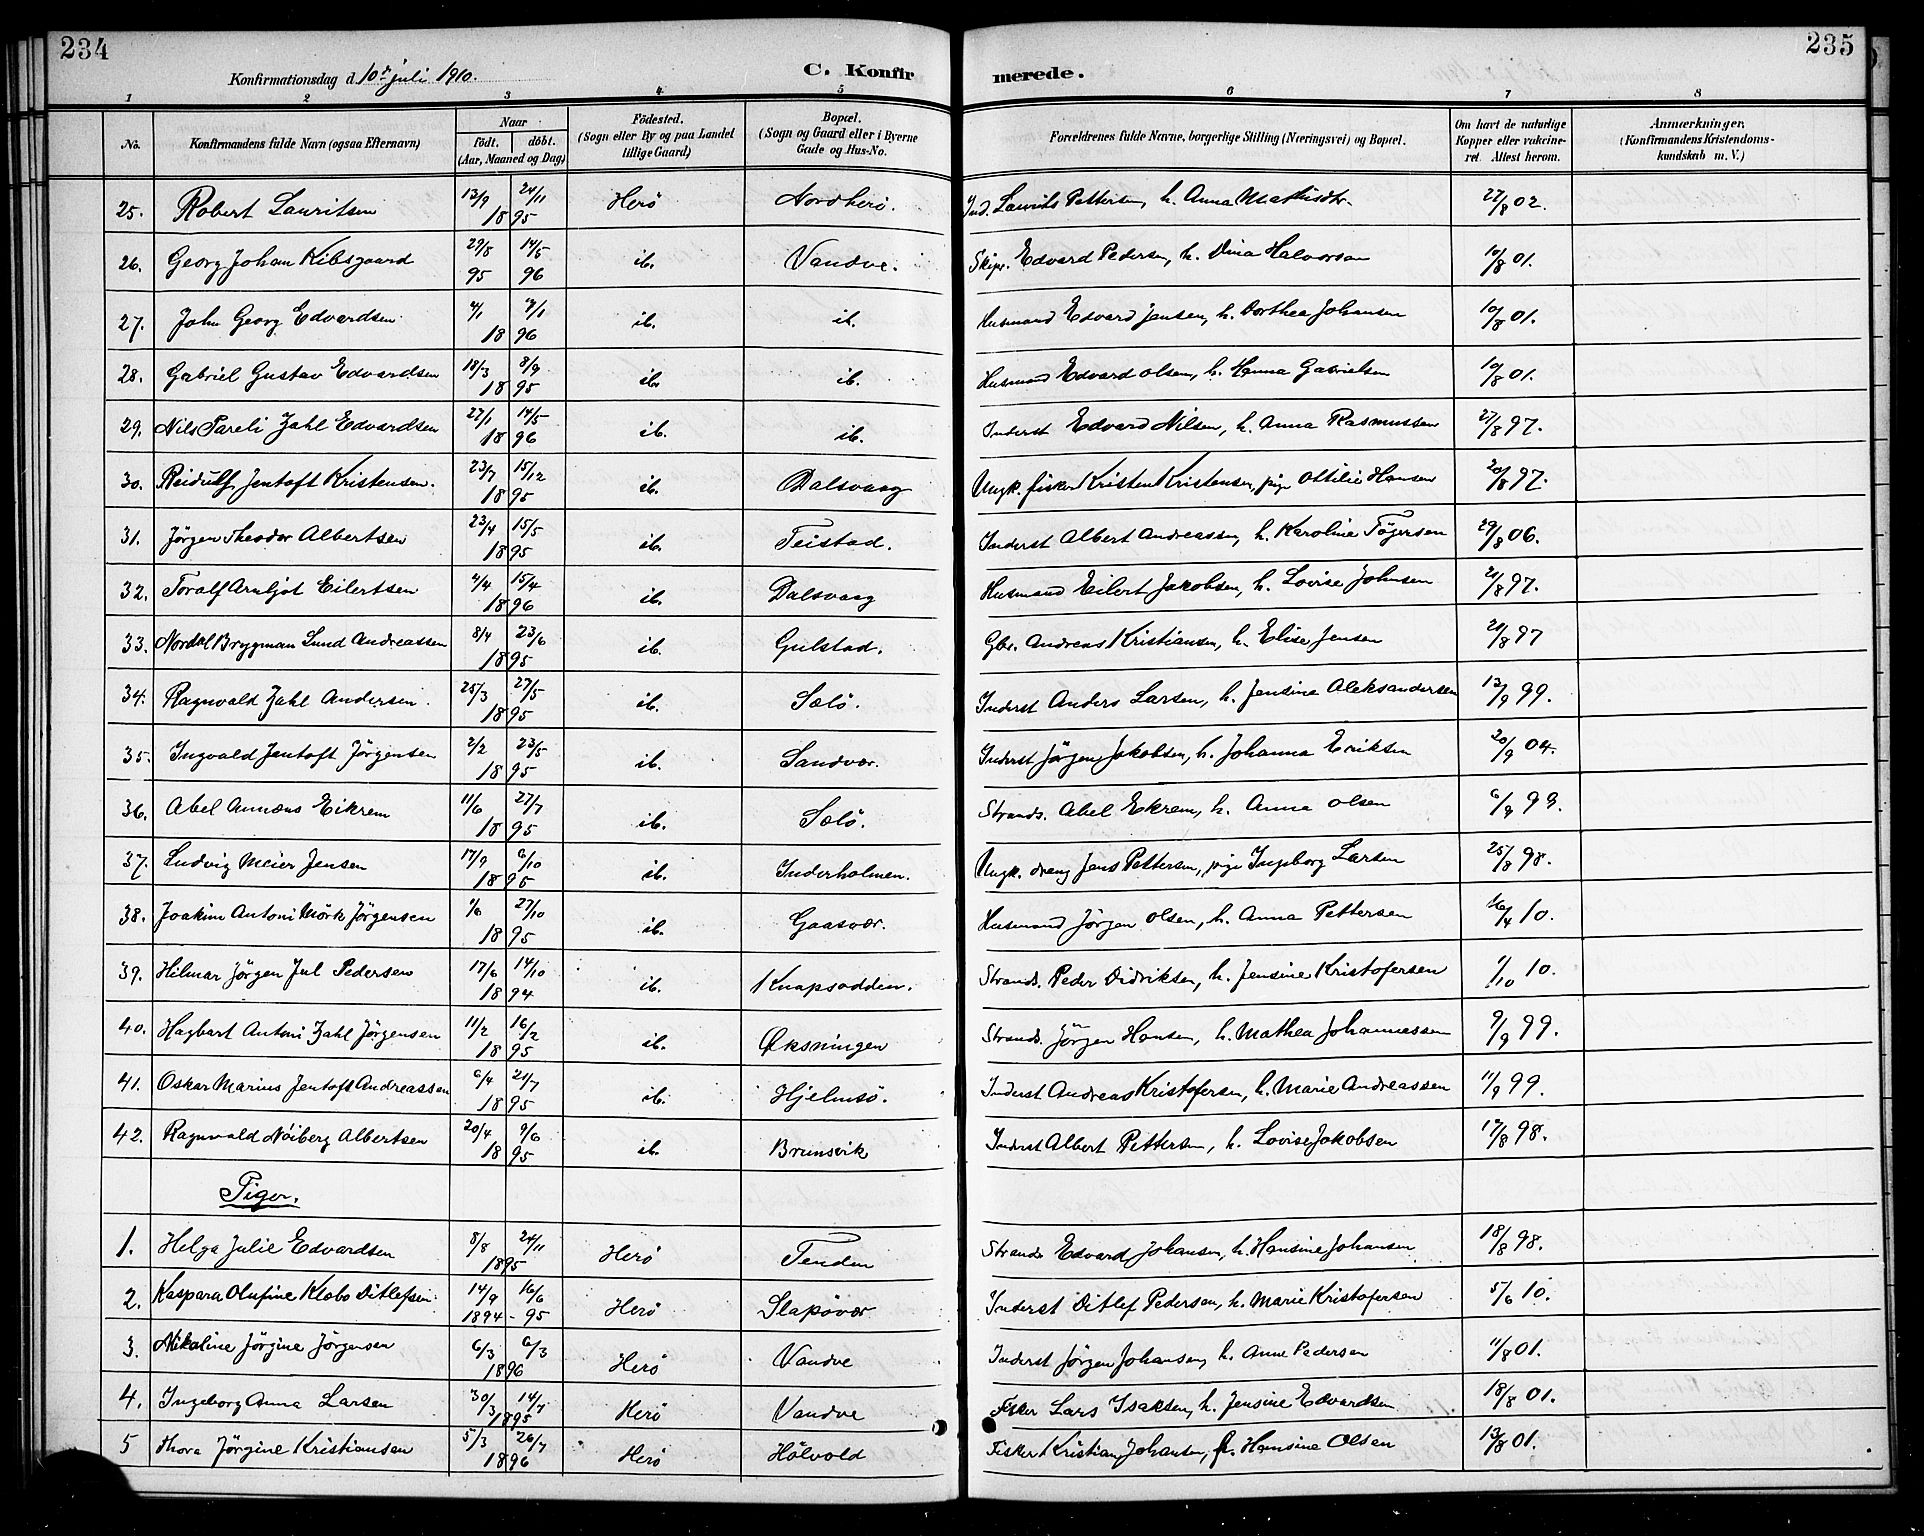 234
235
Konfirmationsdag d. 10de juli 1910.
C. Konfirmerede.
1 2 3 4 5 6 7 8
No.
Konfirmandens fulde Navn (ogsaa Efternavn)
Naar
födt. döbt.
(Aar, Maaned og Dag)
Födested.
(Sogn eller By og paa Landet
tillige Gaard)
Bopæl.
(Sogn og Gaard eller i Byerne
Gade og Hus-No.
Forældrenes fulde Navne, borgerlige Stilling (Næringsvei) og Bopæl.
Om havt de naturlige
Kopper eller vakcine-
ret. Attest herom.
Anmærkninger,
(Konfirmandens Kristendoms-
kundskab m. V.)
25. Robert Lauritsen 13/9 24/11 1895 Herö Nordherö. Ind. Laurits Pettersen, h. Anna Mathisdtr. 27/8 02.
26. Georg Johan Kibsgaard 29/8 95 14/5 96 ib. Vandve. Skipr. Edvard Pedersen, h. Dina Halvorsen 10/8 01.
27. John Georg Edvardsen 4/1 1896 ib. ib. Husmand Edvard Jensen, h. Dorthea Johansen 10/8 01.
28. Gabriel Gustav Edvardsen 18/3 8/9 1895 ib. ib. Husmand Edvard Olsen, h. Hanna Gabrielsen 10/8 01.
29. Nils Pareli Zahl Edvardsen 27/1 14/5 1896 ib. ib. Inderst Edvard Nilsen, h. Anna Rasmussen 27/8 97.
30. Reidulf Jentoft Kristensen. 23/7 15/12 1895 ib. Dalsvaag Ungk. fisker Kristen Kristensen, pige Ottilie Hansen 20/8 97.
31. Jörgen Theodor Albertsen 23/4 15/5 1895 ib. Teistad. Inderst Albert Andreassen, h. Karoline Tögersen 29/8 06.
32. Toralf Arnljot Eilertsen 4/4 15/4 1896 ib. Dalsvaag Husmand Eilert Jakobsen, h. Lovise Johnsen 21/8 97.
33. Nordal Brygman Lund Andreassen 8/4 23/6 1895 ib. Gulstad. Gbr. Andreas Kristiansen, h. Elise Jensen 21/8 97
34. Ragnvald Zahl Andersen. 25/3 27/5 1895 ib. Sælö. Inderst Anders Larsen, h. Jensine Aleksandersen 13/9 99.
35. Ingvald Jentoft Jörgensen 2/2 23/5 1895 ib. Sandvær. Inderst Jörgen Jakobsen, h. Johanna Eriksen 20/9 04.
36. Abel Annæus Eikrem 11/6 27/7 1895 ib. Sælö. Strands. Abel Ekrem, h. Anna Olsen 6/9 99.
37. Ludvig Meier Jensen 17/9 6/10 1895 ib. Inderholmen. Ungk. dreng Jens Pettersen, pige Ingeborg Larsen 25/8 98.
38. Joakim Antoni Mörk Jörgensen 1/6 27/10 1895 ib. Gaasvær. Husmand Jörgen Olsen, h. Anna Pettersen 16/4 10.
39. Hilmar Jörgen Jul Pedersen 17/6 14/10 1894 ib. Knapsodden. Strands. Peder Didriksen, h. Jensine Kristofersen 1/10 10.
40. Hagbart Antoni Zahl Jörgensen 11/2 16/2 1895 ib. Øksningen Strands. Jörgen Hansen, h. Mathea Johannessen 9/9 99.
41. Oskar Marius Jentoft Andreassen 6/4 21/7 1895 ib. Hjelmsö. Inderst Andreas Kristofersen, h. Marie Andreassen 11/9 99.
42. Ragnvald Nöiberg Albertsen 20/4 9/6 1895 ib. Brunsvik Inderst Albert Pettersen, h. Lovise Jakobsen 17/8 98.
Piger.
1. Helga Julie Edvardsen 8/8 24/11 1895 Herö Tenden Strands Edvard Johansen, h. Hansine Johansen 18/8 98.
2. Kaspara Olufine Klobo Ditlefsen. 14/9 16/6 1894 - 95 Herö Slapövær Inderst Ditlef Pedersen, h. Marie Kristofersen 5/6 10.
3. Nikoline Jörgine Jörgensen 6/3 6/3 1896 Herö Vandve Inderst Jörgen Johansen, h. Anne Pedersen 11/8 01.
4. Ingeborg Anna Larsen 30/3 14/7 1895 Herö Vandve Fisker Lars Isaksen, h. Jensine Edvardsen 18/8 01.
5 Thora Jörgine Kristiansen 5/3 26/7 1896 Herö Hölvold Fisker Kristian Johansen, h. Hansine Olsen 13/8 01.